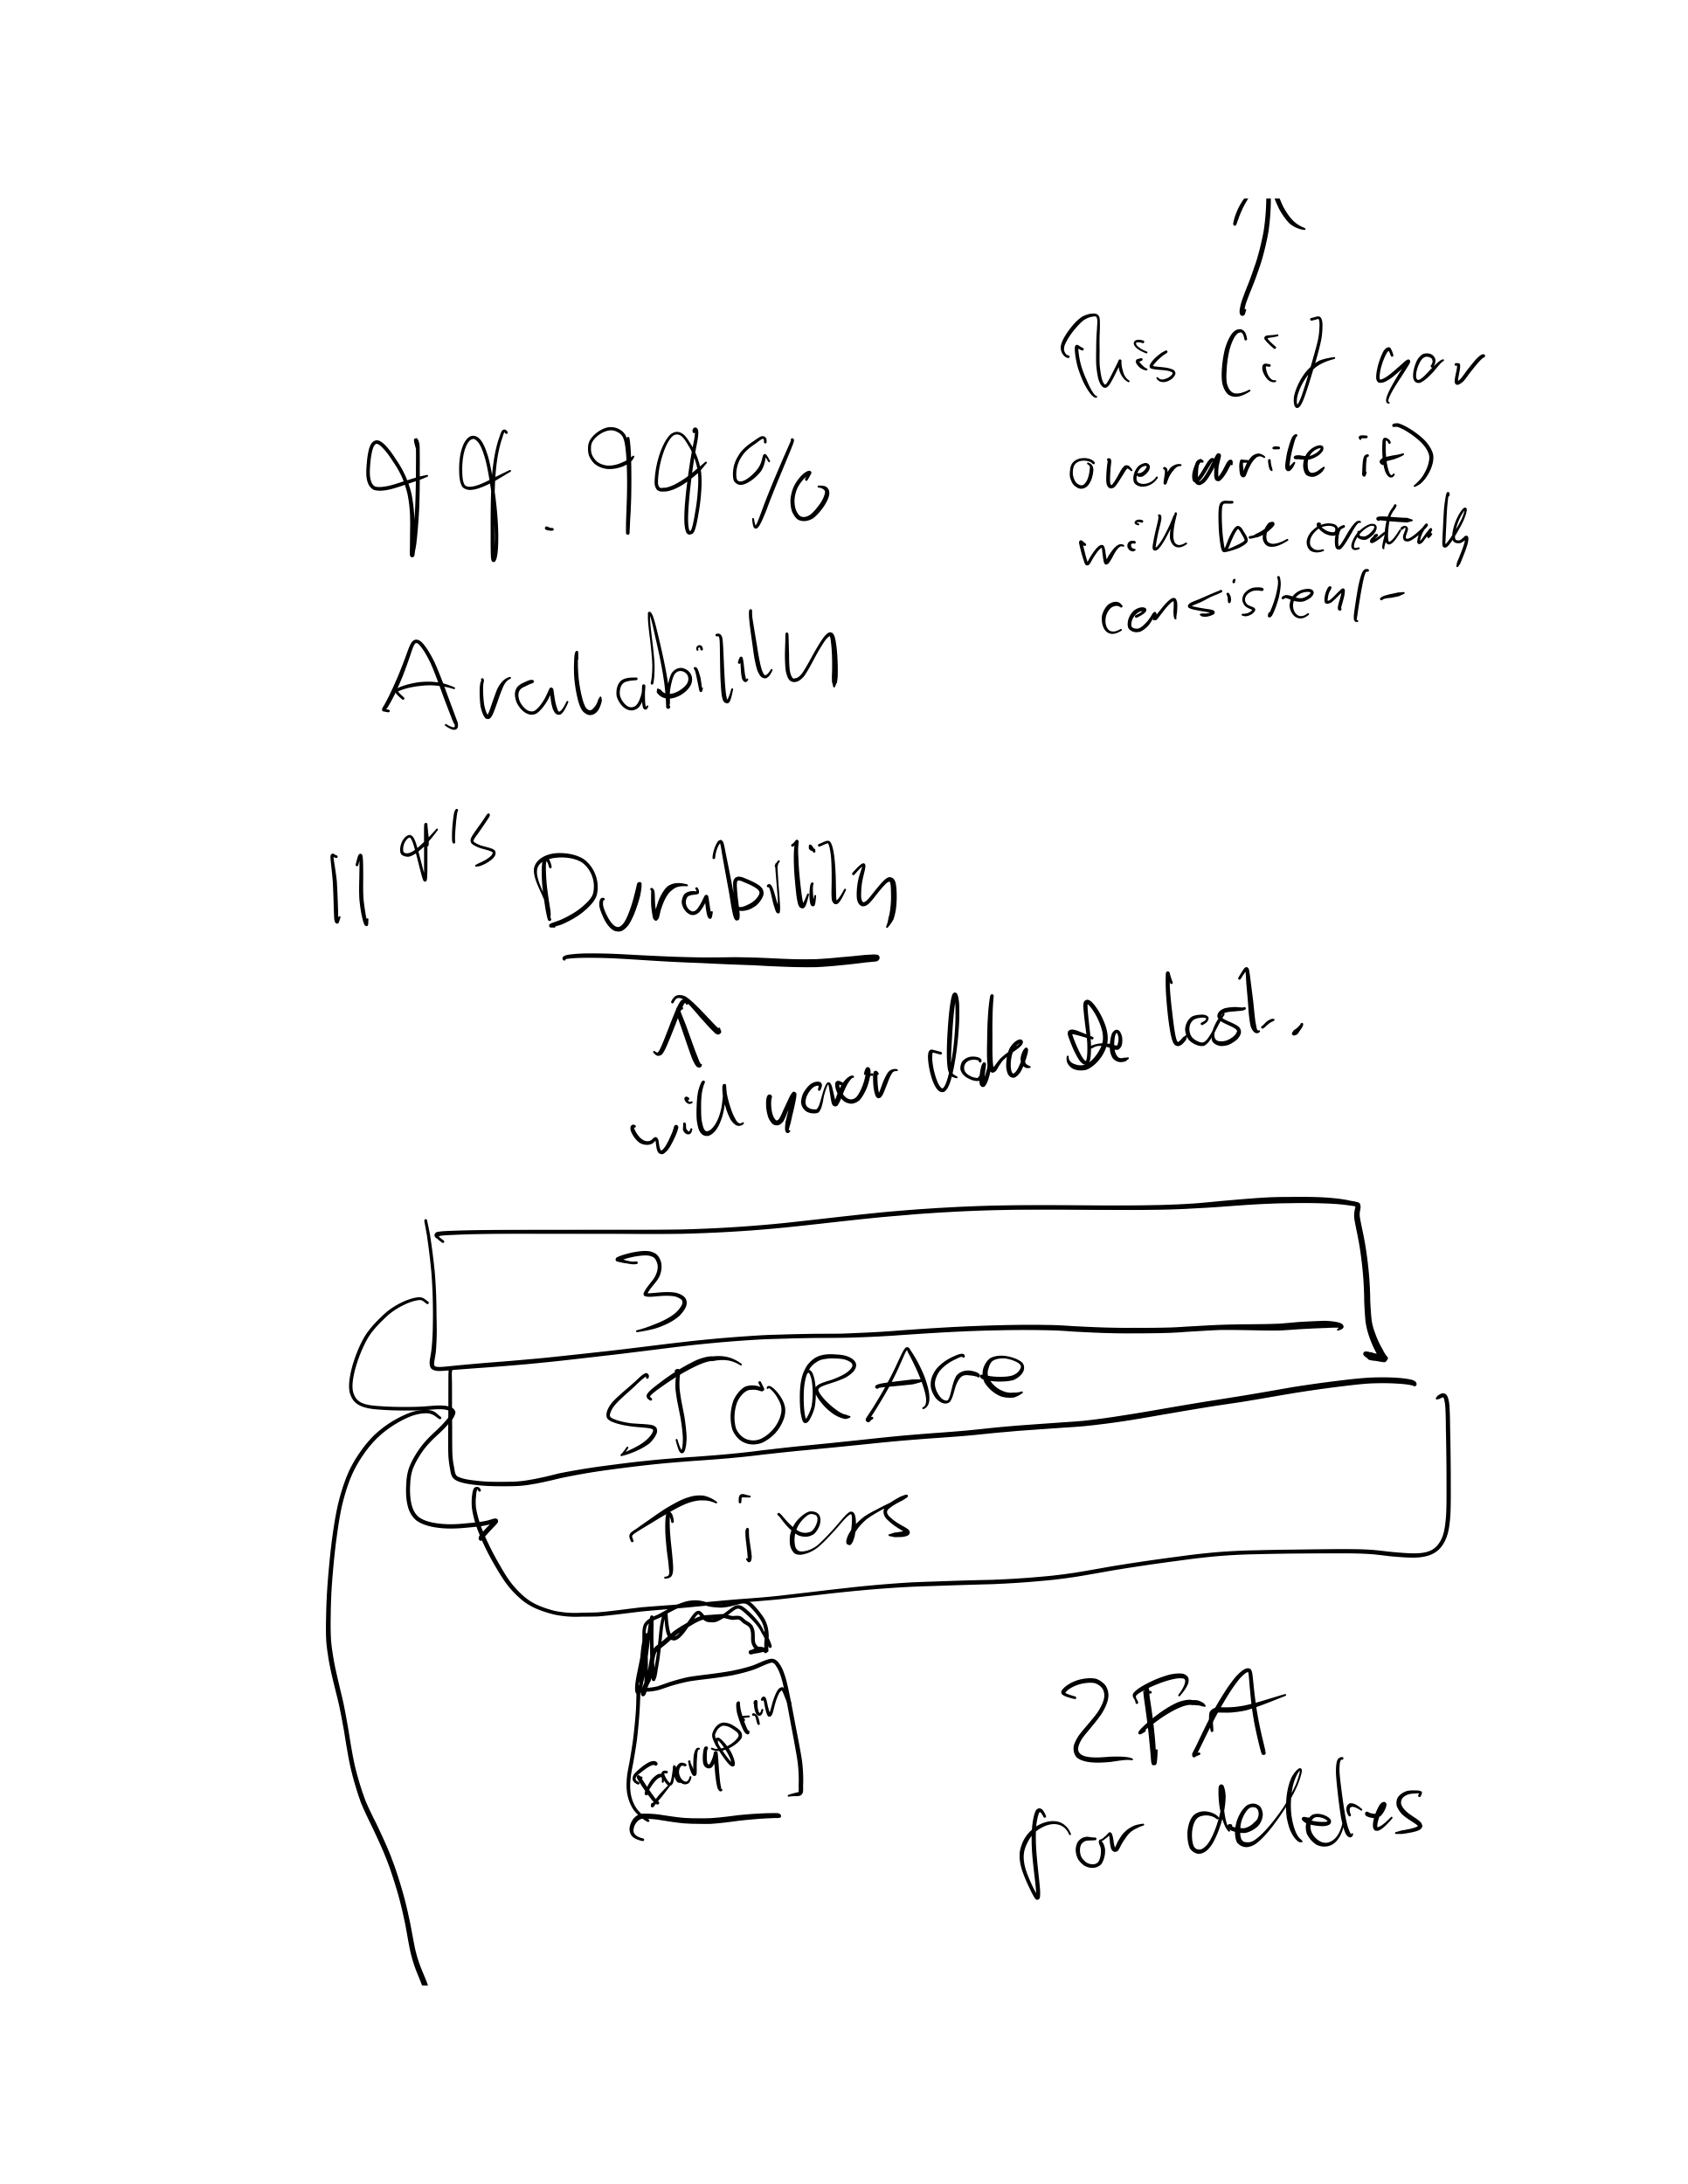 This (if you
overwrite it)
will be eventually
consistent
99.99%
Availability
11 9's Durability
will your data be lost..
3
STORAGE
Tiers
Encryption
2FA
for deletes